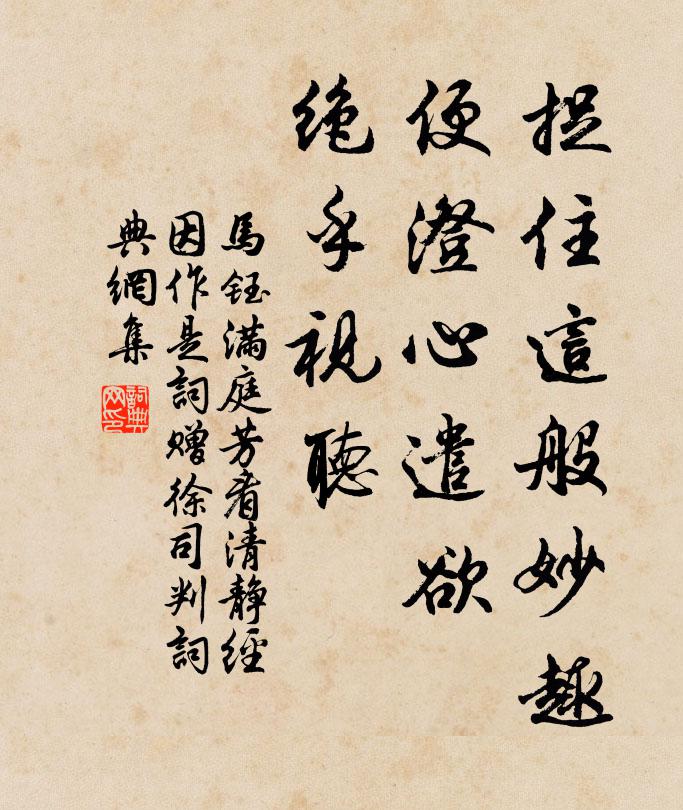 捉住這般妙趣
便澄心遣欲
絶乎視聽
馬鈺滿庭芳看清靜經
因作是詞贈徐司判詞
典網集
詞典網印